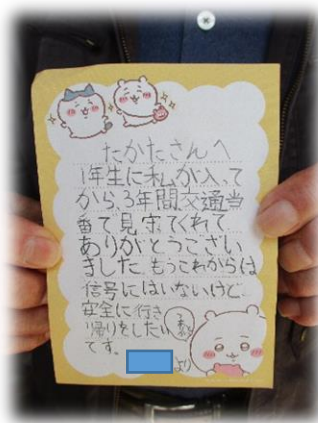 たかたさんへ
1年生に私が入って
から、3年間交通当
番で見守てくれて
ありがとうござい
ました。もうこれからは
信号にはいないけど
安全に行き
帰りをしたい
です。
より